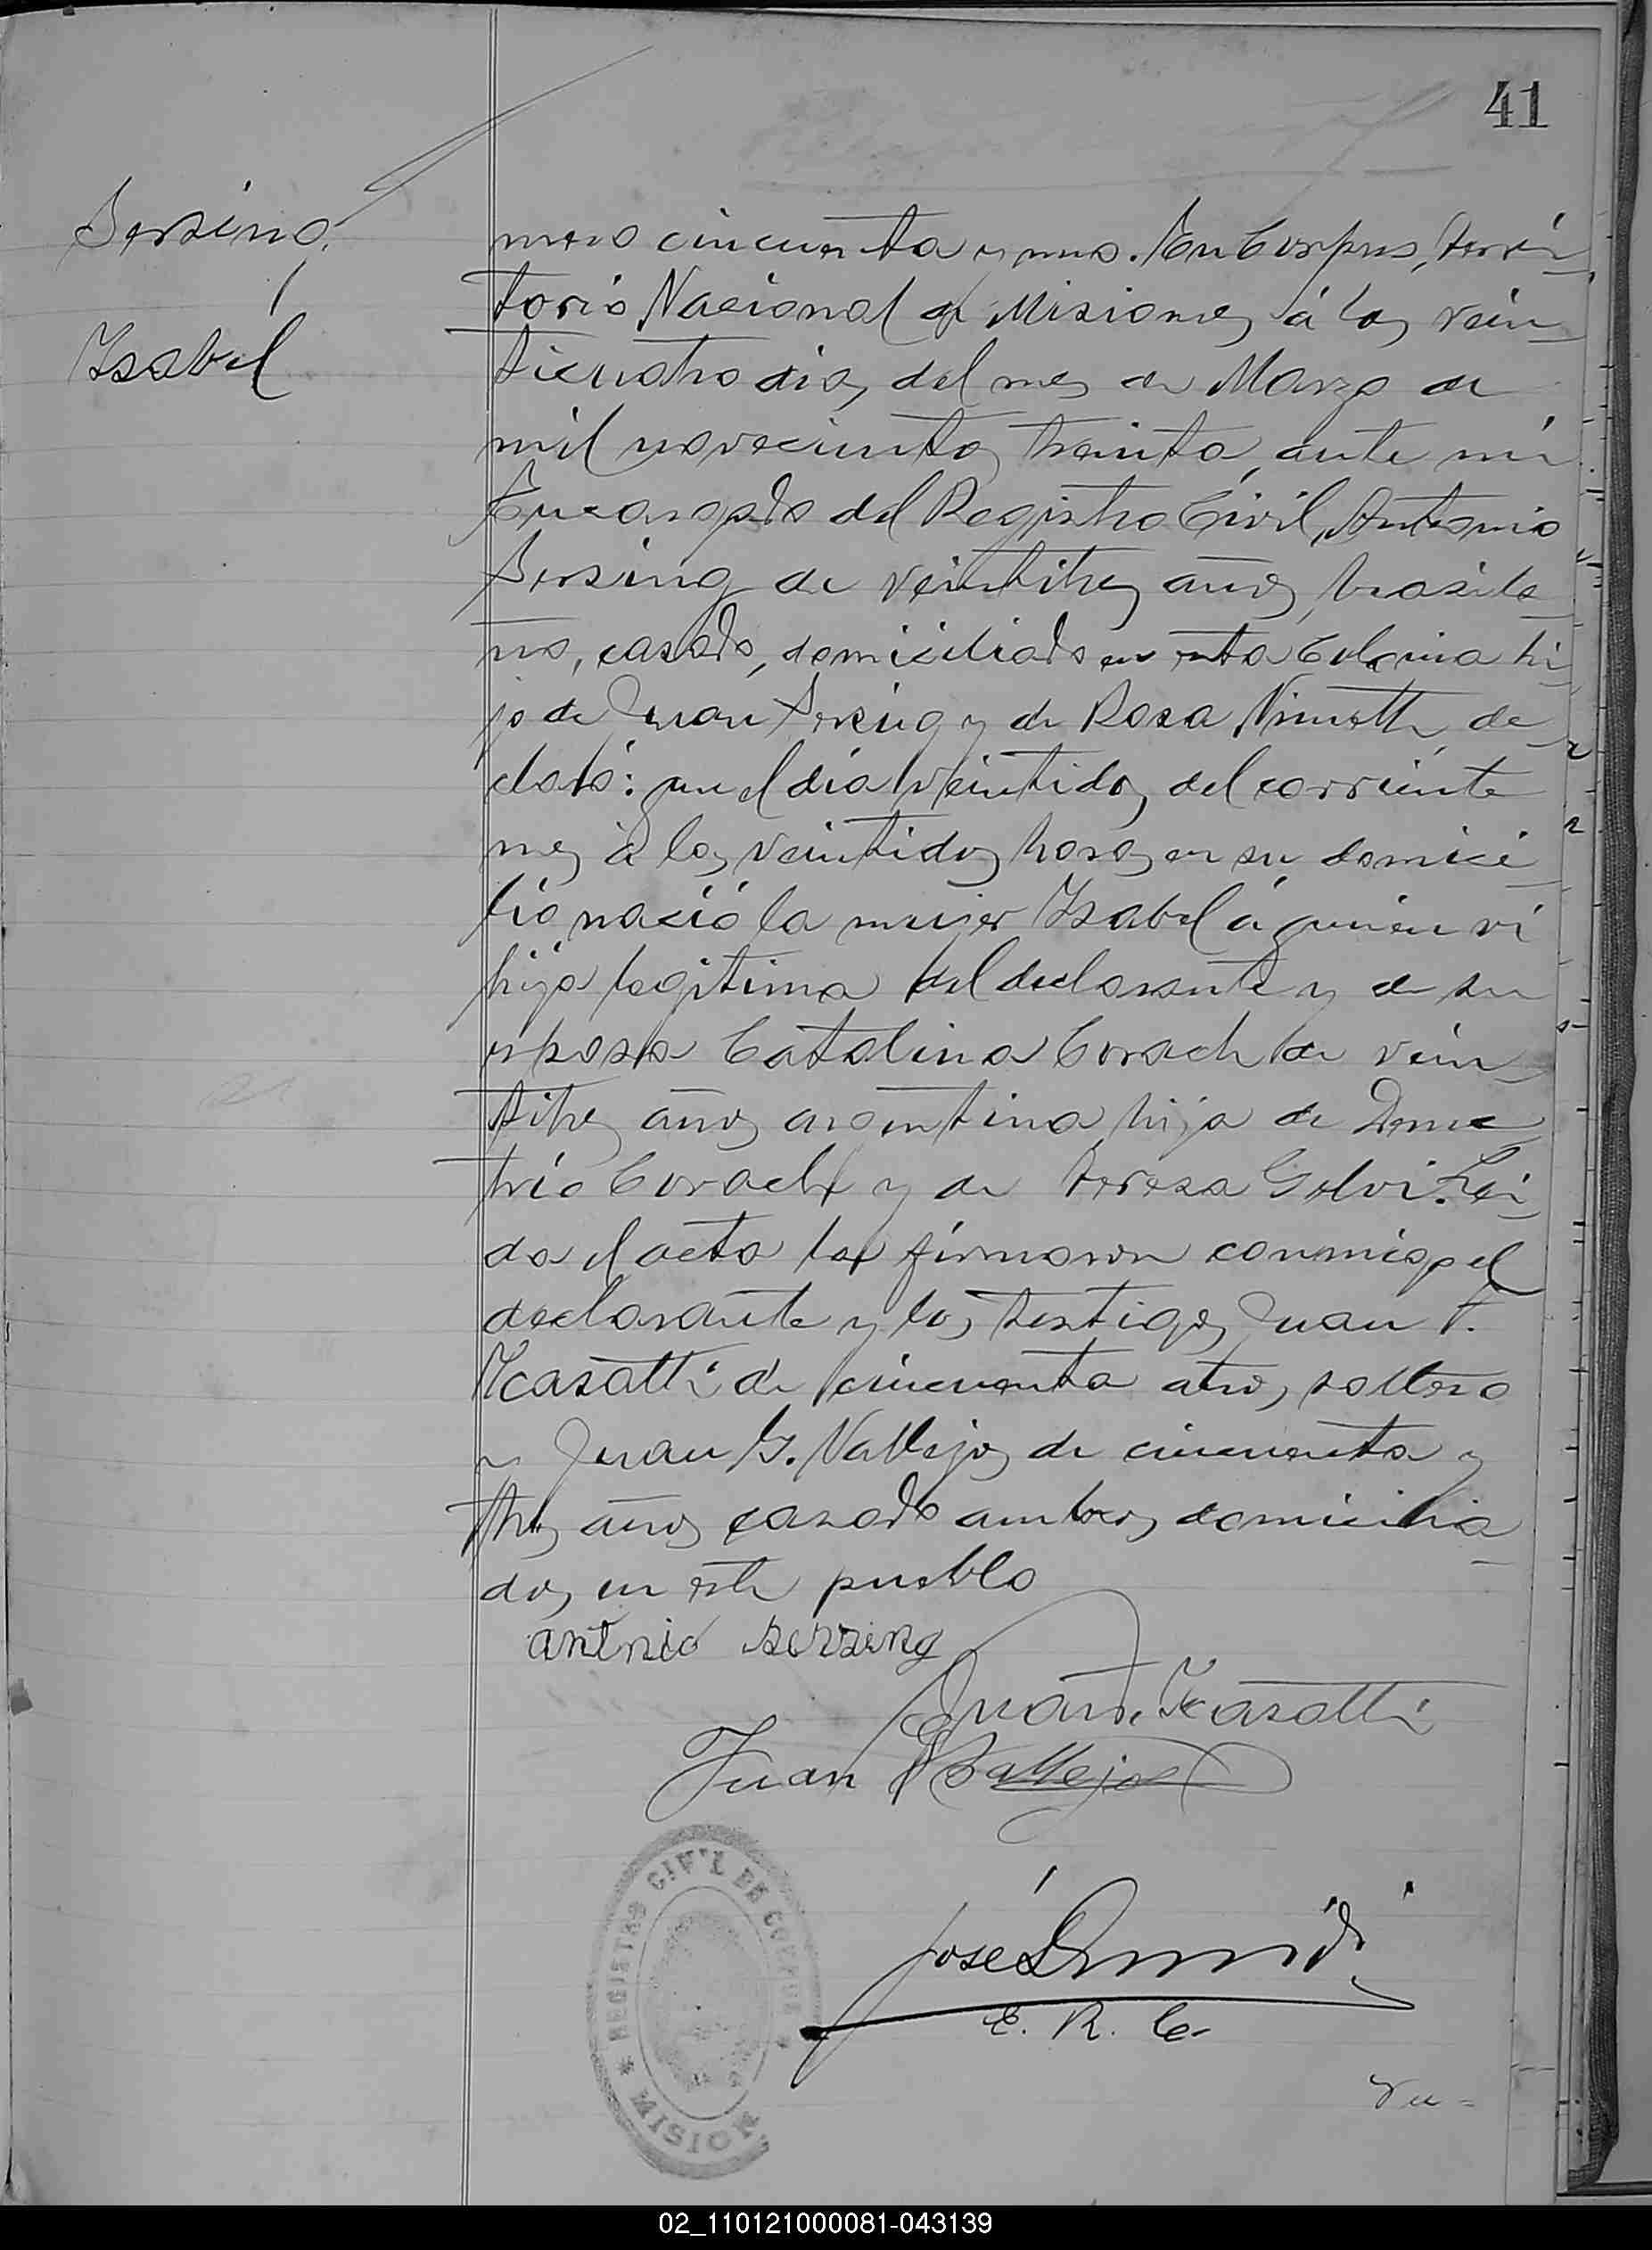 41
Sersing,
Isabel
mero cincuenta y uno. En Corpus, Terri-
torio Nacional de Misiones, á los vein-
ticuatro dias del mes de Marzo de
mil novecientos treinta, ante mi
Encargado del Registro Civil, Antonio
Sersing de veintitres años, brasile-
no, casado, domiciliado en esta Colonia hi-
jo de Juan Sersing y de Rosa de-
claró: que el día veintidos del corriente
mes á las veintidos horas en su domici-
lio nació la mujer Isabel á quien vi
hija legitima del declarante y de su
esposa Catalina Corach de vein-
titres años argentina hija de Deme-
trio Corach y de Teresa Golvi. Lei-
da el acta la firmaron conmigo el
declarante y los testigos Juan F.
Kasatti de cincuenta años, soltero
y Juan G. Vallejos de cincuenta y
tres años casado ambos domicilia-
dos en este pueblo
antnio sersing
Juan F. Kasatti
Juan G Vallejos
José
E. R. C.
REGISTRO CIVIL DE CORPUS
MISION
nu-
02_110121000081-043139